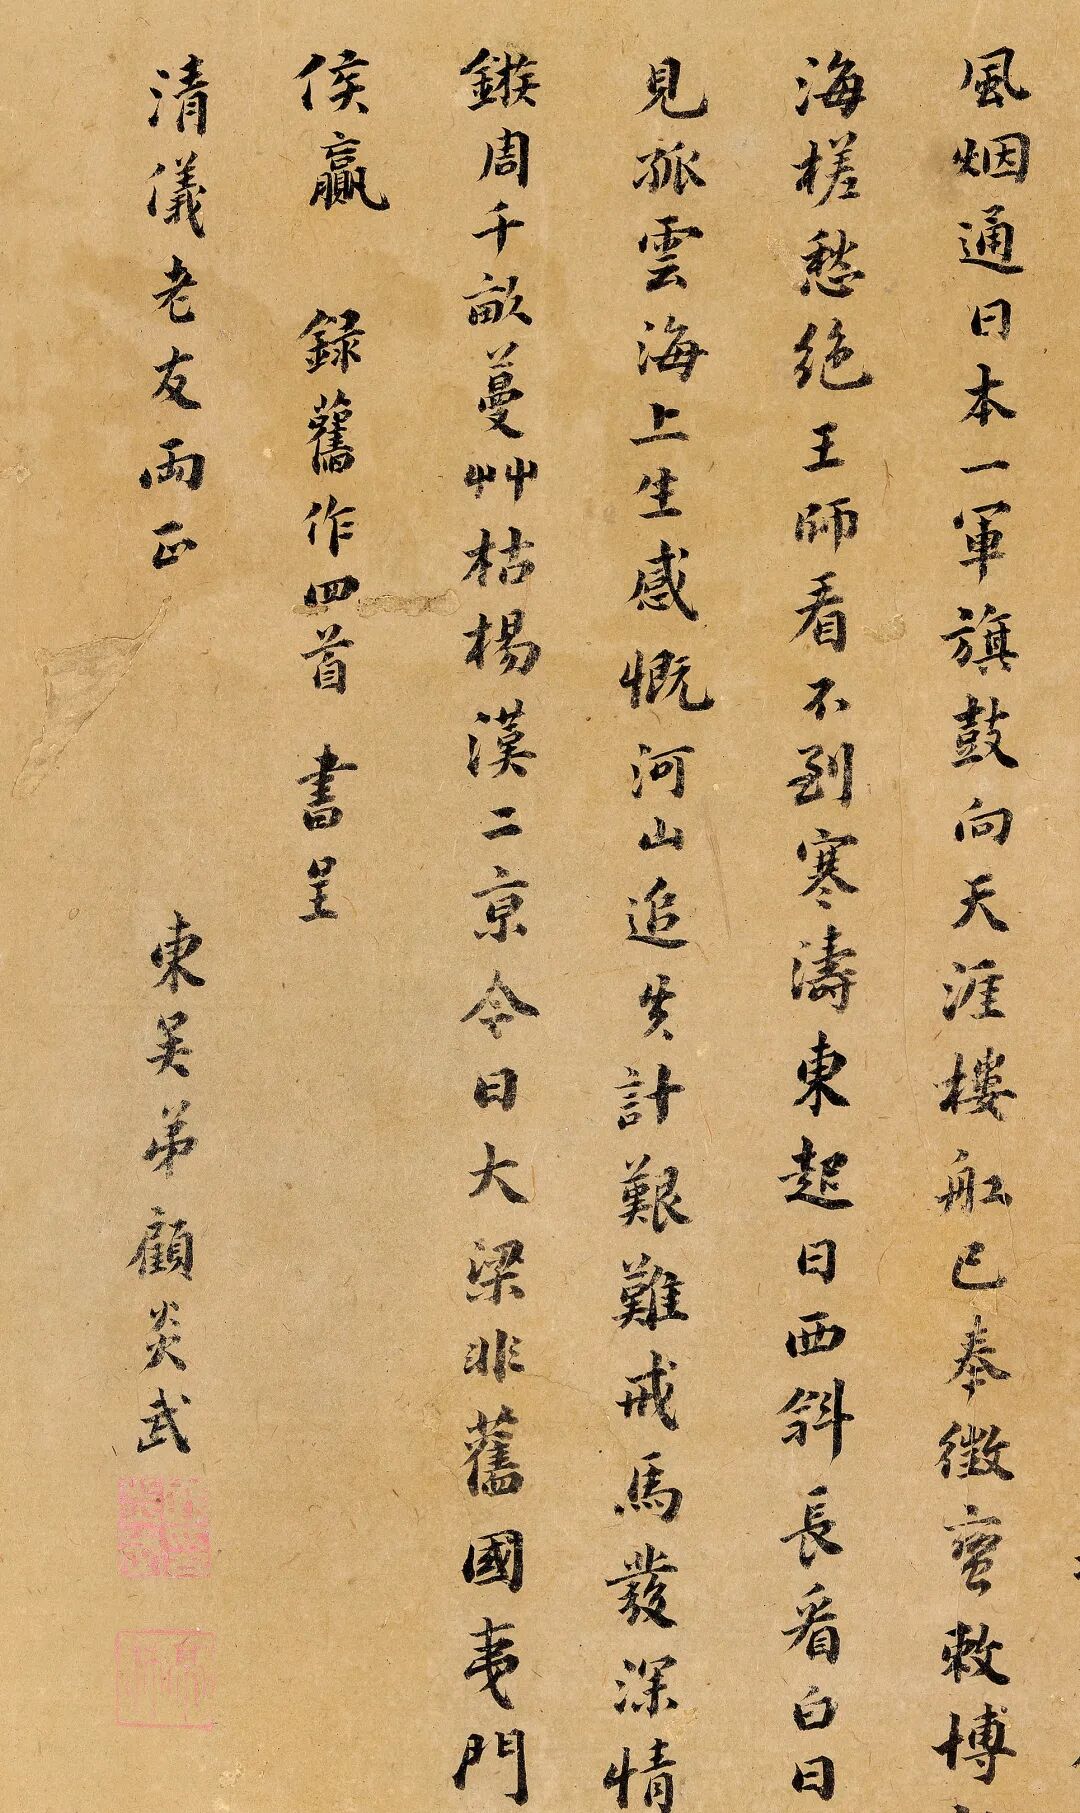 風烟通日本一軍旗鼓向天涯樓舩已奉徵蛮敕博
海槎愁絶王師看不到寒濤東起日西斜長看白日
見孤雲海上生感慨河山追失計艱難戒馬發深情
鏃周千畝蔓艸枯楊漢二京今日大梁非舊國夷門
侯嬴 錄舊作四首 書呈
清儀老友兩正 東吴弟顧炎武